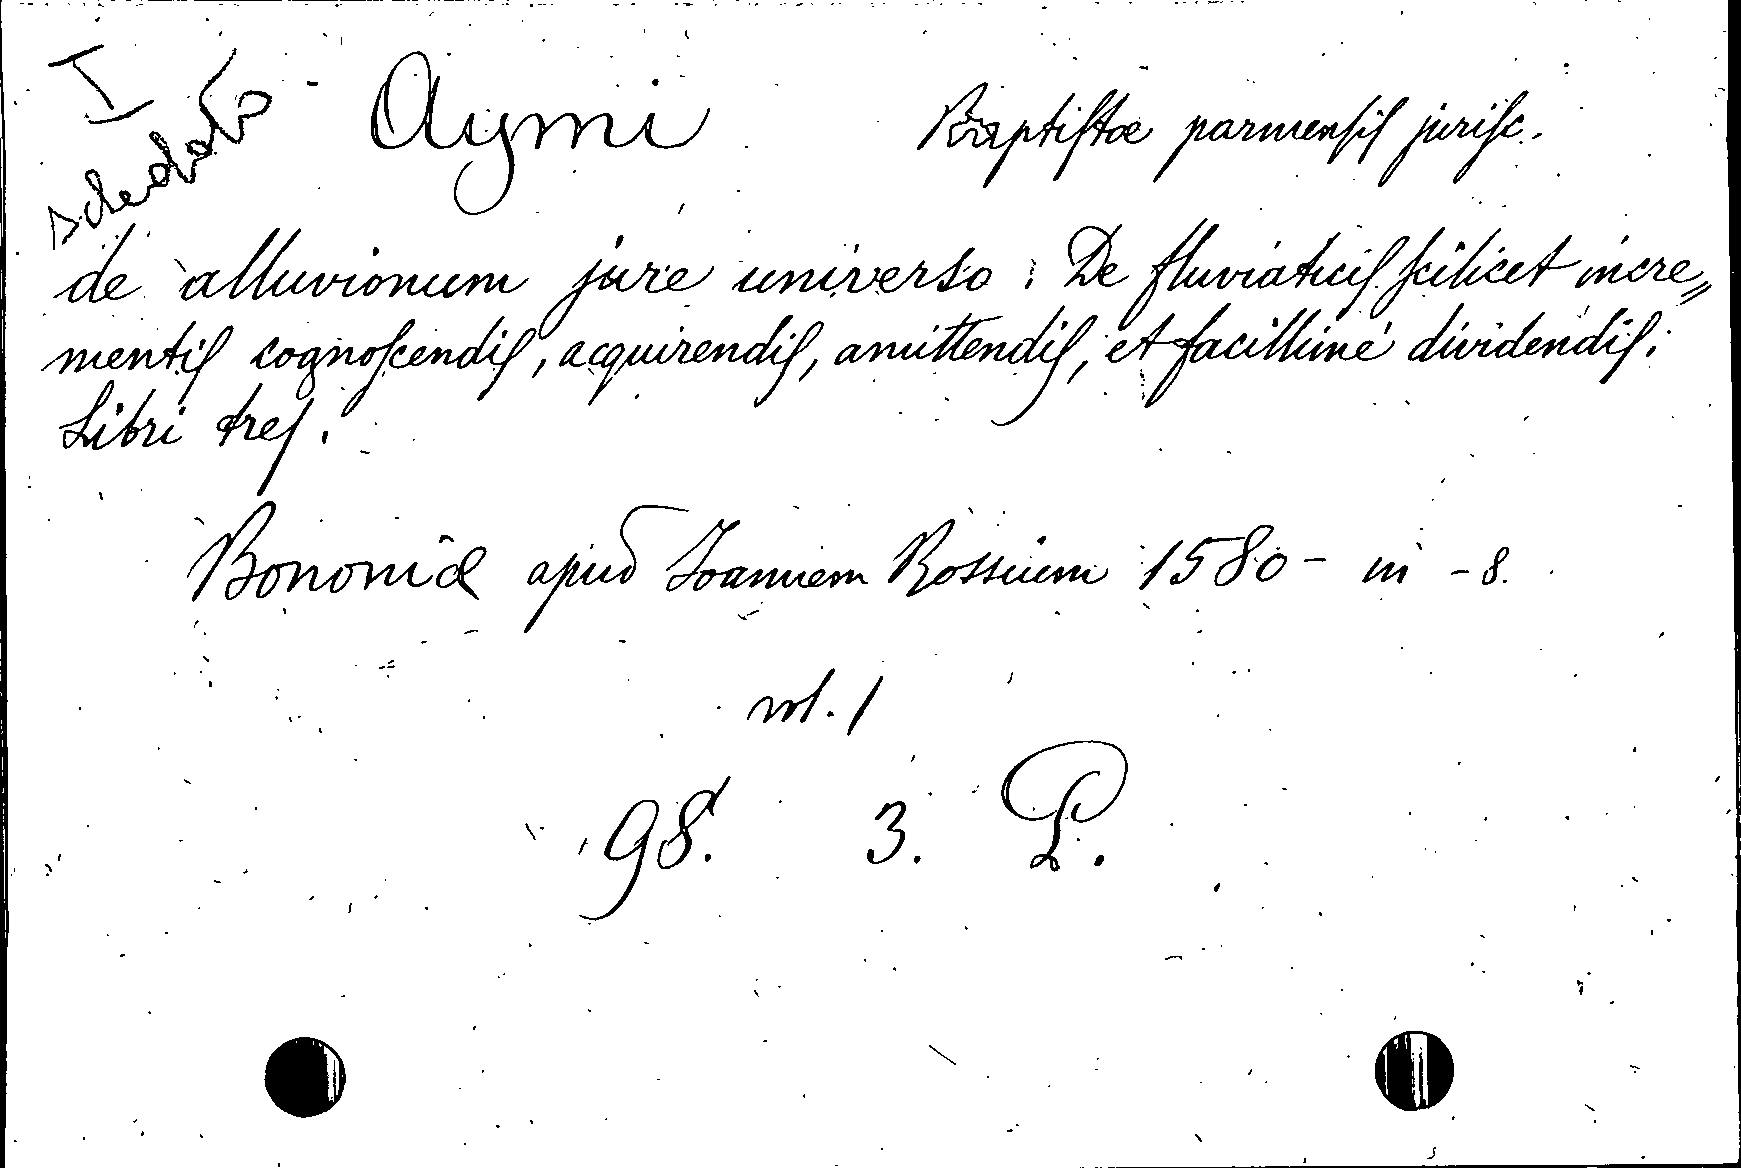 I
schedato
Aymi Baptistæ parmensis jurisc.
de alluvionum jure universo : De fluviaticis scilicet incre„
mentis cognoscendis, acquirendis, amittendis, et facillimé dividendis.
Libri tres.
Bononiæ apud Ioannem Rossium 1580 - in - 8.
vol. 1
98. 3. P.